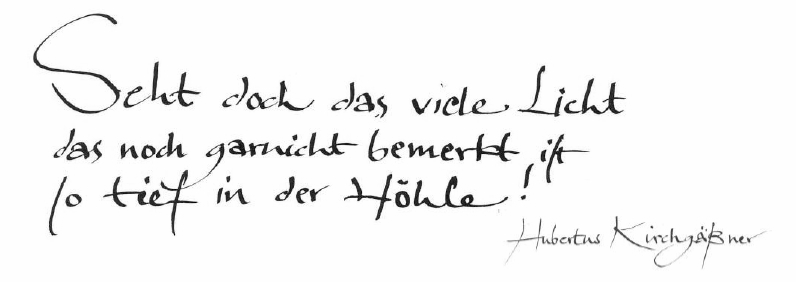 Seht doch das viele Licht
das noch garnicht bemerkt ist
so tief in der Höhle!
Hubertus Kirchgäßner